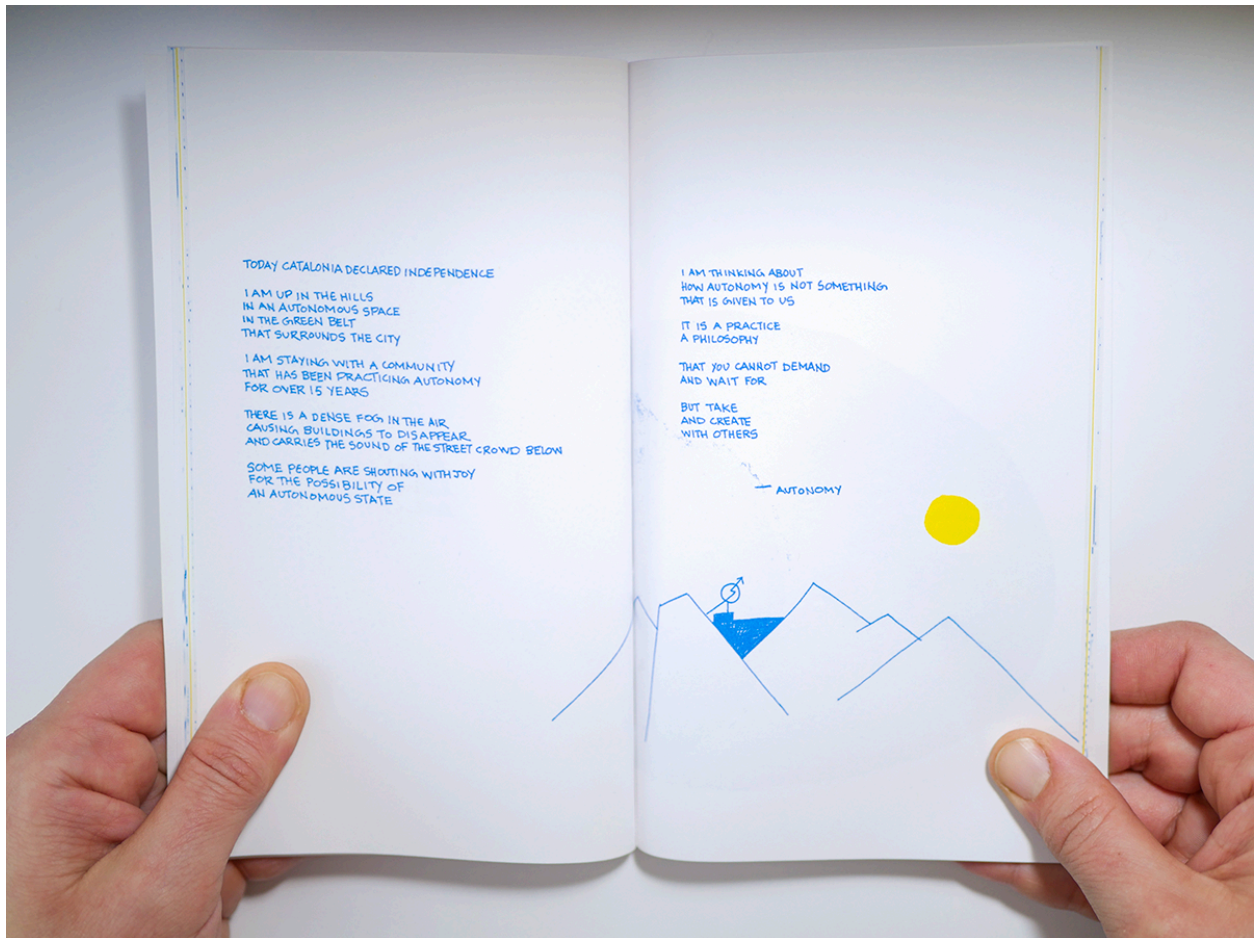 TODAY CATALONIA DECLARED INDEPENDENCE
I AM UP IN THE HILLS
IN AN AUTONOMOUS SPACE
IN THE GREEN BELT
THAT SURROUNDS THE CITY
I AM STAYING WITH A COMMUNITY
THAT HAS BEEN PRACTICING AUTONOMY
FOR OVER 15 YEARS
THERE IS A DENSE FOG IN THE AIR
CAUSING BUILDINGS TO DISAPPEAR
AND CARRIES THE SOUND OF THE STREET CROWD BELOW
SOME PEOPLE ARE SHOUTING WITH JOY
FOR THE POSSIBILITY OF
AN AUTONOMOUS STATE
I AM THINKING ABOUT
HOW AUTONOMY IS NOT SOMETHING
THAT IS GIVEN TO US
IT IS A PRACTICE
A PHILOSOPHY
THAT YOU CANNOT DEMAND
AND WAIT FOR
BUT TAKE
AND CREATE
WITH OTHERS
— AUTONOMY